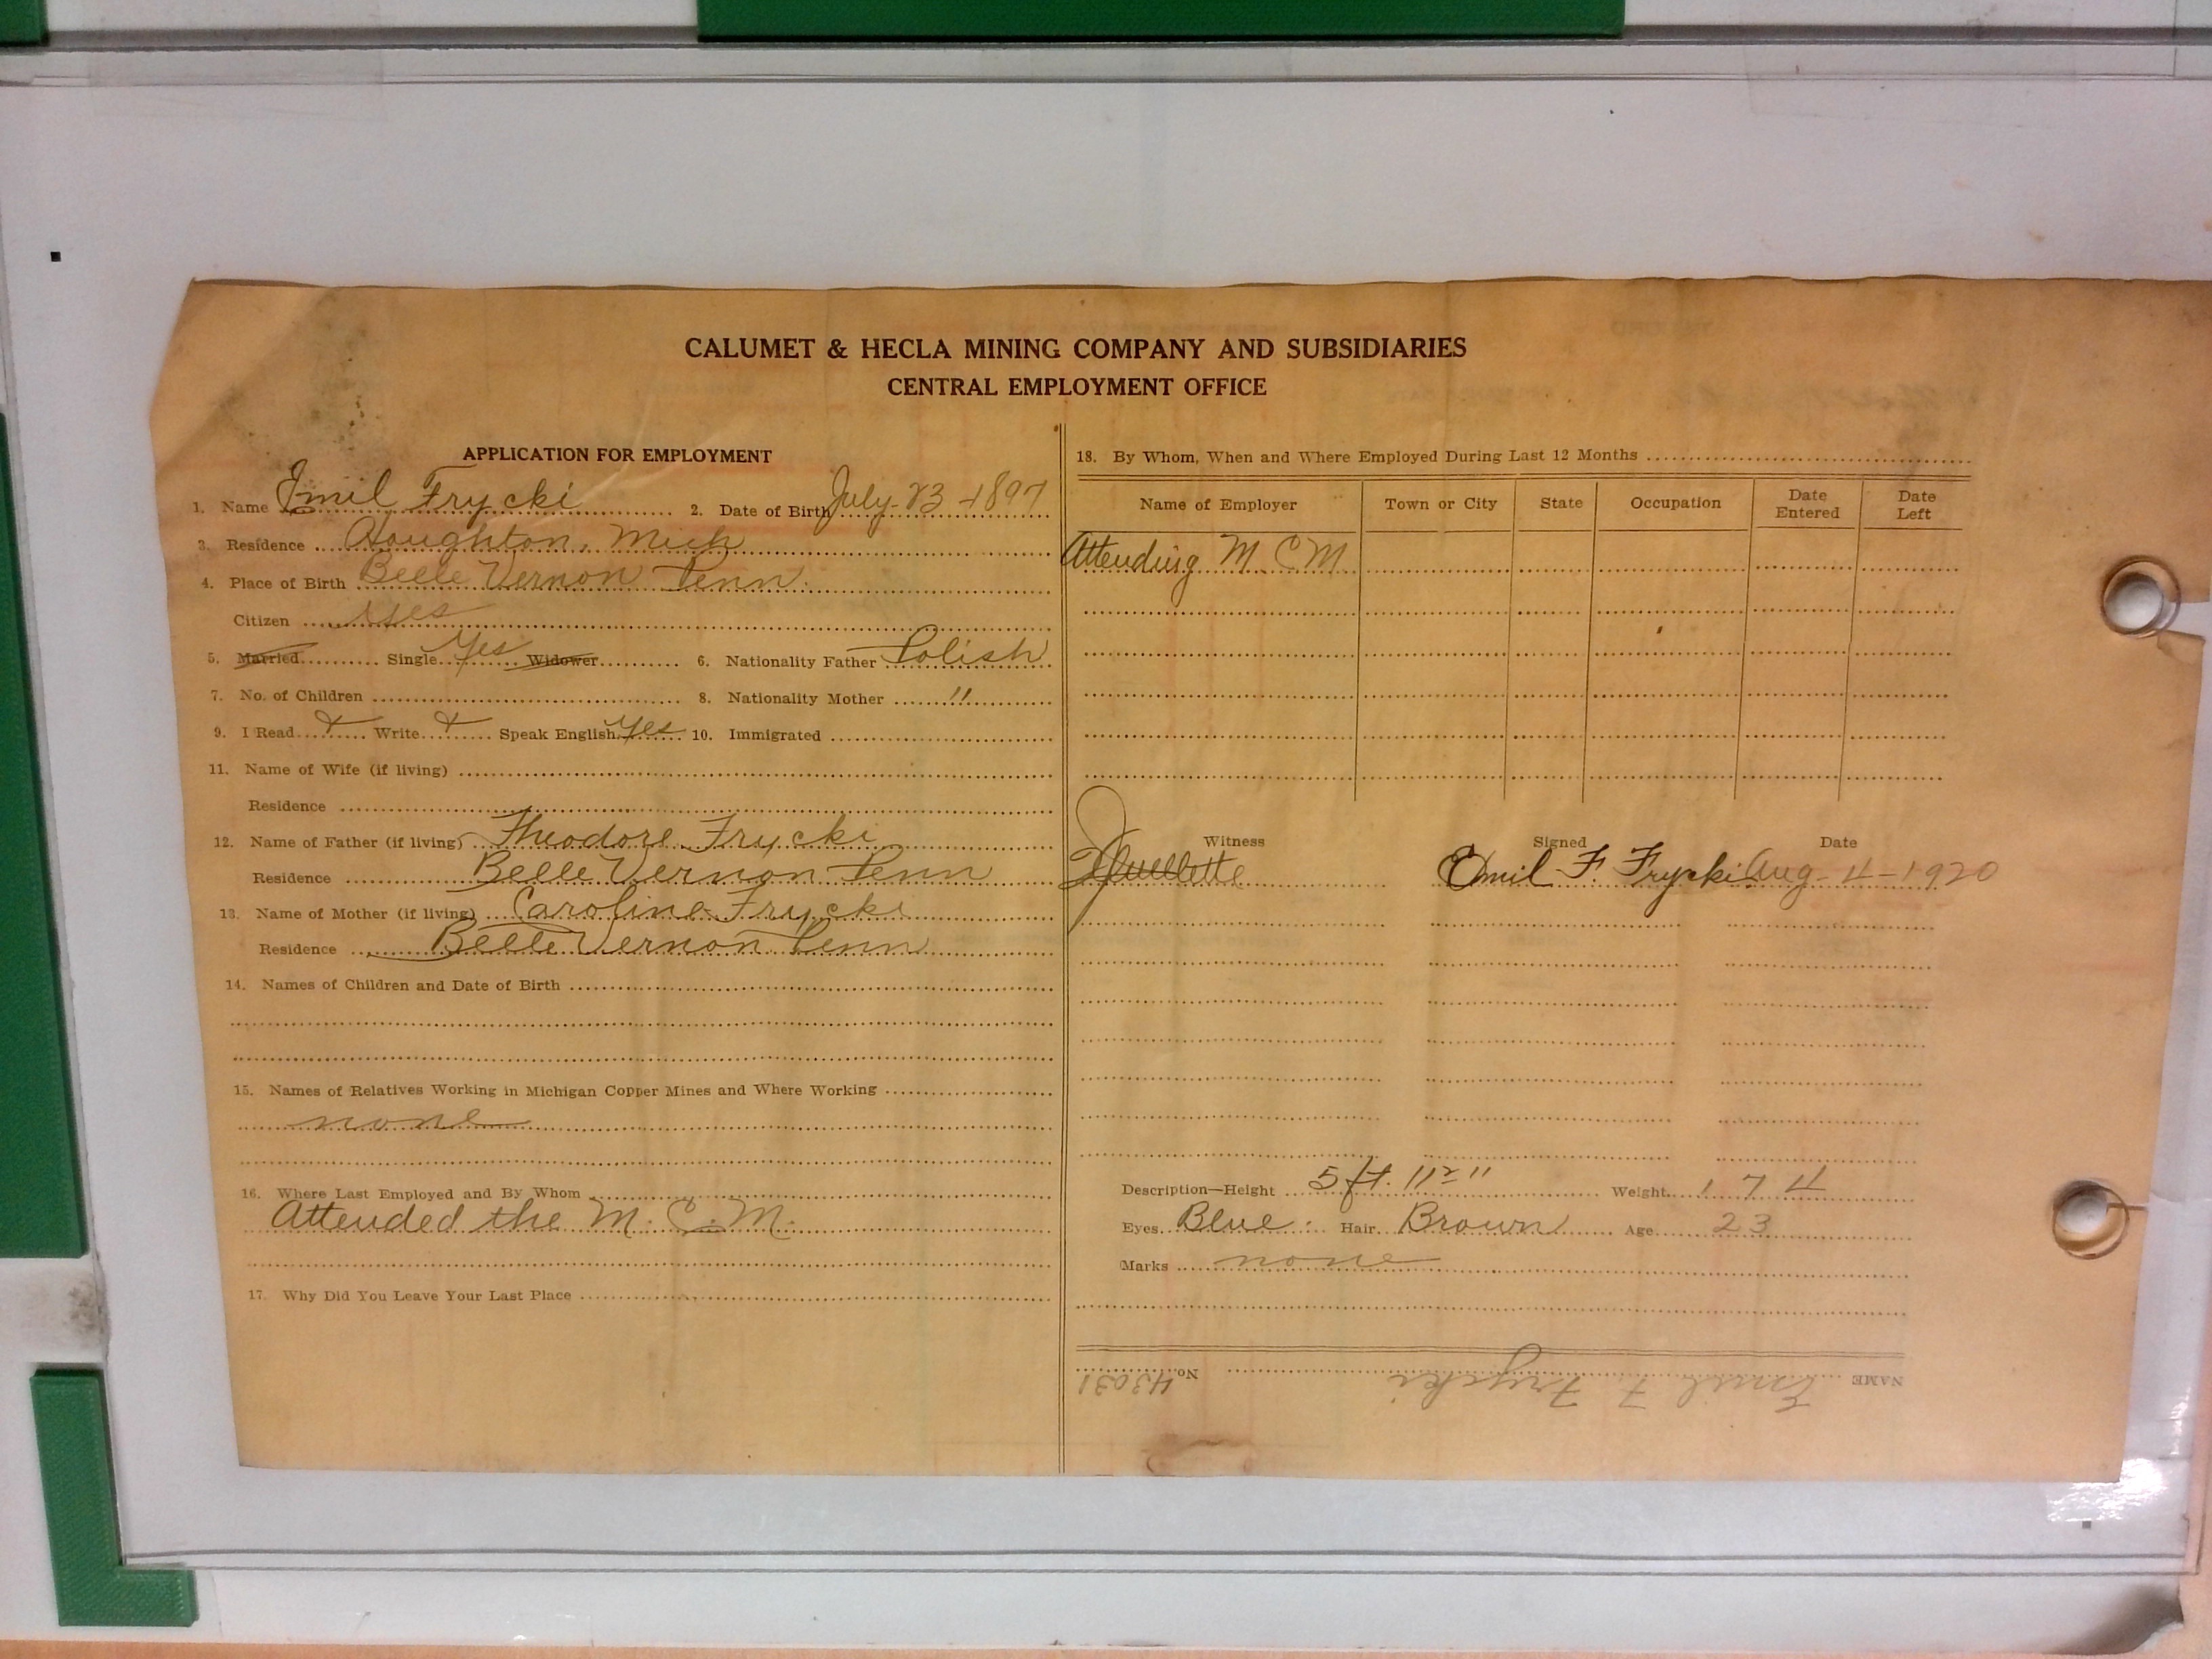 CALUMET & HECLA MINING COMPANY AND SUBSIDIARIES
CENTRAL EMPLOYMENT OFFICE
APPLICATION FOR EMPLOYMENT
1. Name Emil Frycki 2. Date of Birth July-23-1897
3. Residence Houghton, Mich
4. Place of Birth Belle Vernon Penn.
Citizen Yes
5. Married Single Yes Widower 6. Nationality Father Polish
7. No. of Children 8. Nationality Mother "
9. I Read + Write + Speak English Yes 10. Immigrated
11. Name of Wife (if living)
Residence
12. Name of Father (if living) Theodore Frycki
Residence Belle Vernon Penn
13. Name of Mother (if living) Caroline Frycki
Residence Belle Vernon Penn
14. Names of Children and Date of Birth
15. Names of Relatives Working in Michigan Copper Mines and Where Working
none
16. Where Last Employed and By Whom
Attended the M. C. M.
17. Why Did You Leave Your Last Place
18. By Whom, When and Where Employed During Last 12 Months
Name of Employer Town or City State Occupation Date Entered Date Left
Attending M. C M.
Witness Signed Date
Emil F. Frycki Aug-4-1920
Description—Height 5 ft. 11 Weight 174
Eyes Blue. Hair Brown Age 23
Marks none
NAME Emil F. Frycki No. 43031